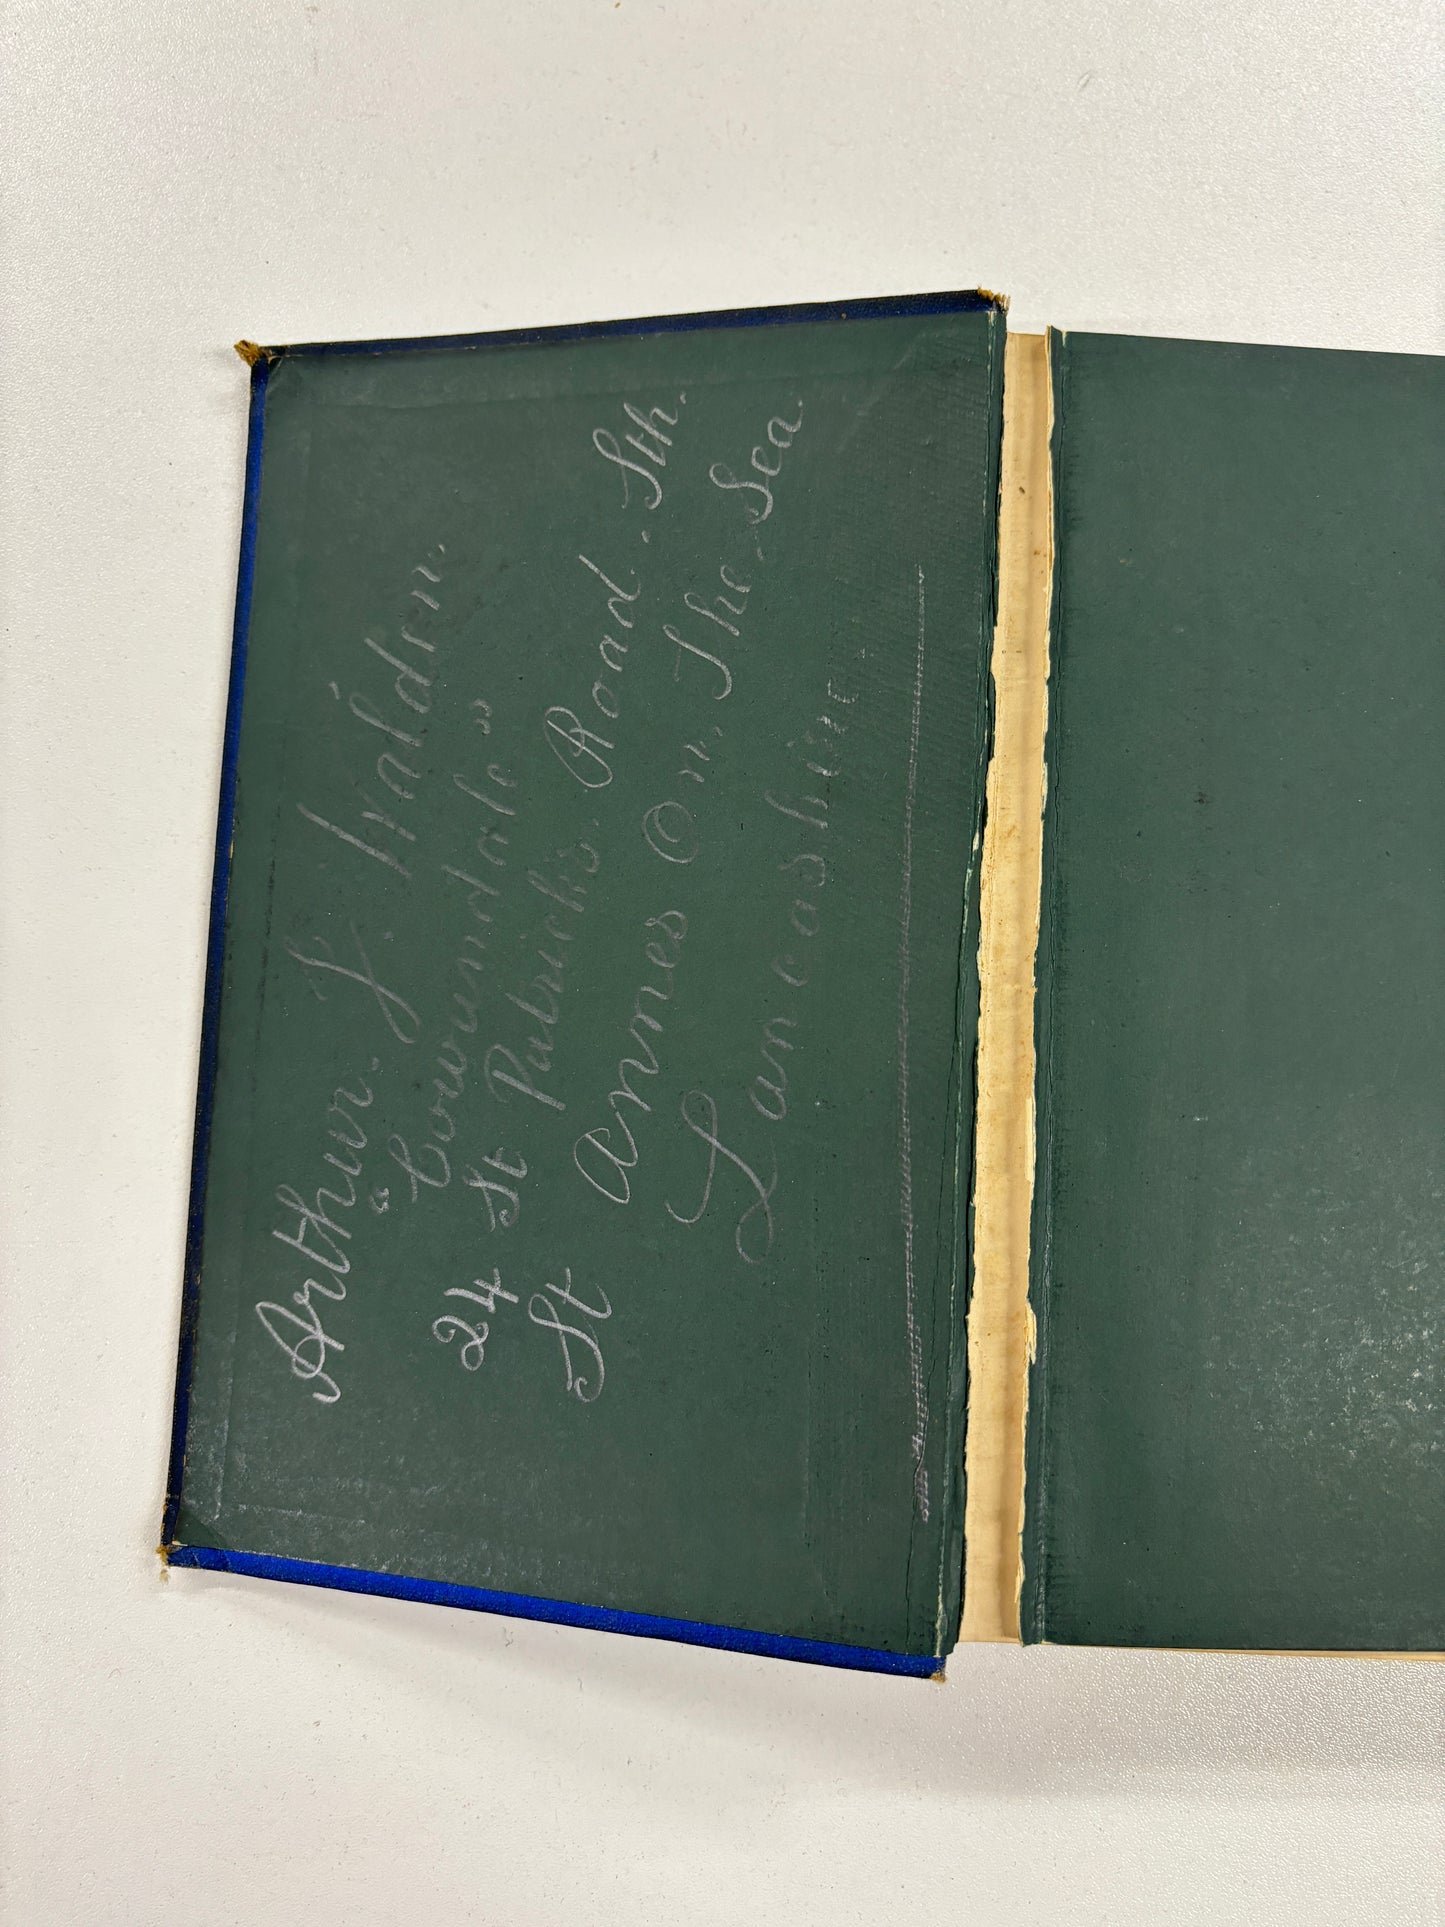 Arthur. J Waldron.
"Cowındale"
24 St Patricks. Road. Sth.
St annes On. The. Sea.
Lancashire